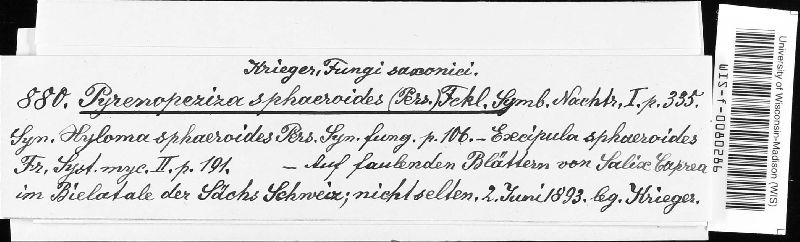 Krieger, Fungi saxonici.
880. Pyrenopeziza sphaeroides (Pers.) Fckl. Symb. Nachtr. I. p. 335.
Syn. Xyloma sphaeroides Pers. Syn. fung. p. 106. – Excipula sphaeroides
Fr. Syst. myc. II. p. 191. – Auf faulenden Blättern von Salix Caprea
im Bielatale der Sächs Schweiz; nicht selten. 2. Juni 1893. leg. Krieger.
University of Wisconsin-Madison (WIS)
WIS-f-0080286